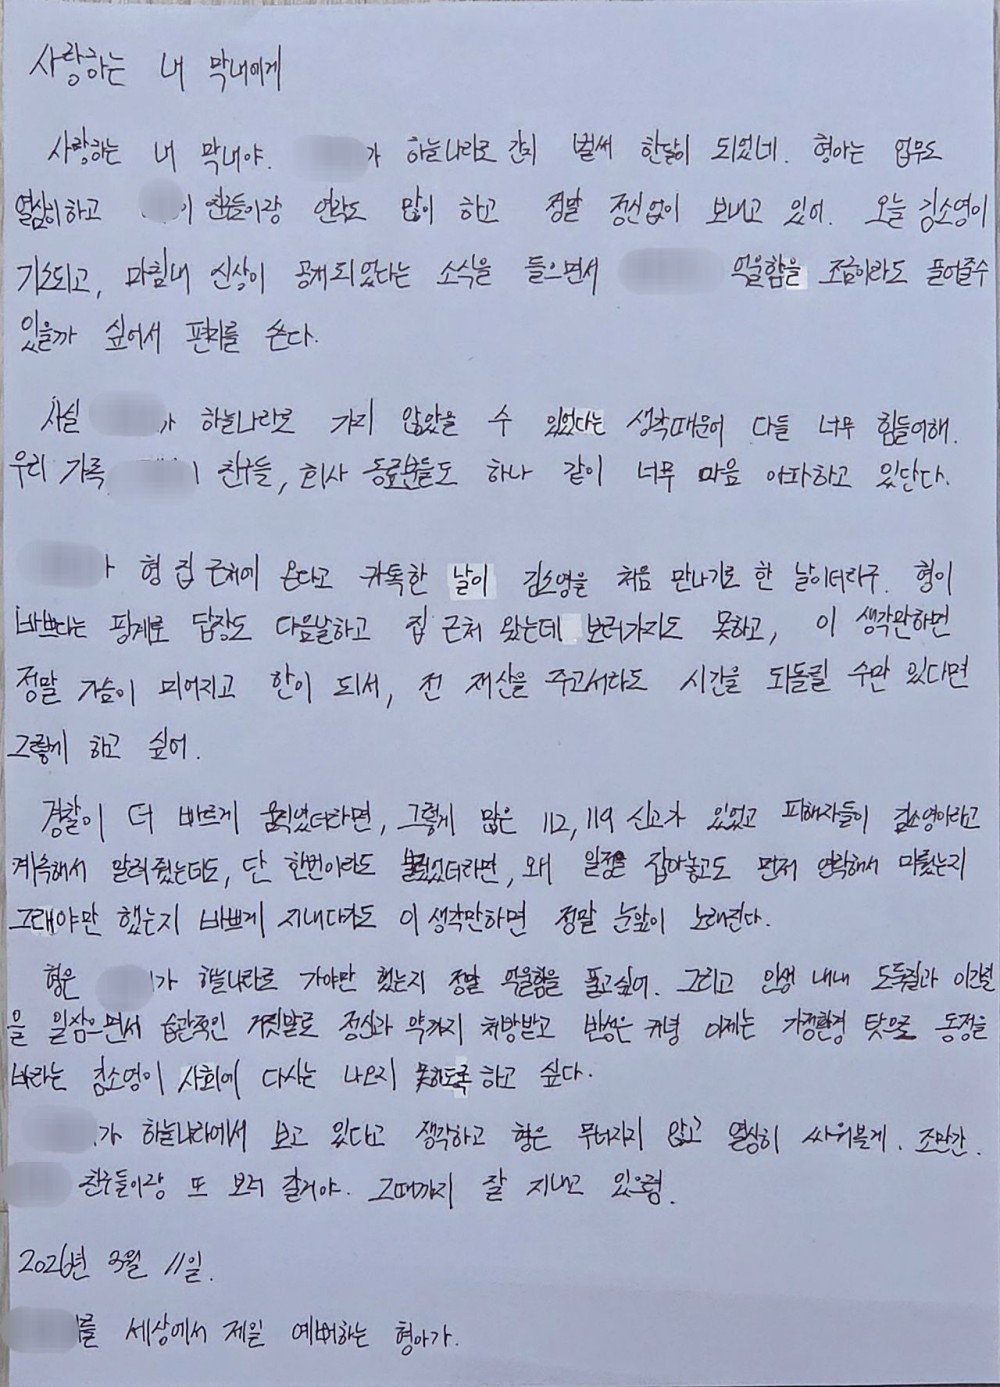 사랑하는 내 막내에게
사랑하는 내 막내야. 가 하늘나라로 간지 벌써 한달이 되었네. 형아는 업무도
열심히하고 이 친구들이랑 연락도 많이 하고 정말 정신없이 보내고 있어. 오늘 김소영이
기소되고, 마침내 신상이 공개되었다는 소식을 들으면서 억울함을 조금이라도 풀어줄수
있을까 싶어서 편지를 쓴다.
사실 가 하늘나라로 가지 않았을 수 있었다는 생각때문에 다들 너무 힘들어해.
우리 가족, 친구들, 회사 동료분들도 하나 같이 너무 마음 아파하고 있단다.
형 집 근처에 온다고 카톡한 날이 김소영을 처음 만나기로 한 날이더라구. 형이
바쁘다는 핑계로 답장도 다음날하고 집 근처 왔는데 보러가지도 못하고, 이 생각만하면
정말 가슴이 미어지고 한이 되서, 전 재산을 주고서라도 시간을 되돌릴 수만 있다면
그렇게 하고 싶어.
경찰이 더 빠르게 움직였더라면, 그렇게 많은 112, 119 신고가 있었고 피해자들이 김소영이라고
계속해서 알려줬는데도, 단 한번이라도 불렀었더라면, 왜 일정을 잡아놓고도 먼저 연락해서 미뤘는지
그래야만 했는지 바쁘게 지내다가도 이 생각만하면 정말 눈앞이 노래진다.
형은 가 하늘나라로 가야만 했는지 정말 억울함을 풀고싶어. 그리고 인생 내내 도둑질과 이간질
을 일삼으면서 습관적인 거짓말로 정신과 약까지 처방받고 반성은 커녕 이제는 가정환경 탓으로 동정을
바라는 김소영이 사회에 다시는 나오지 못하도록 하고 싶다.
가 하늘나라에서 보고 있다고 생각하고 형은 무너지지 않고 열심히 싸워볼게. 조만간
친구들이랑 또 보러 갈거야. 그때까지 잘 지내고 있으렴.
2026년 3월 11일.
를 세상에서 제일 예뻐하는 형아가.